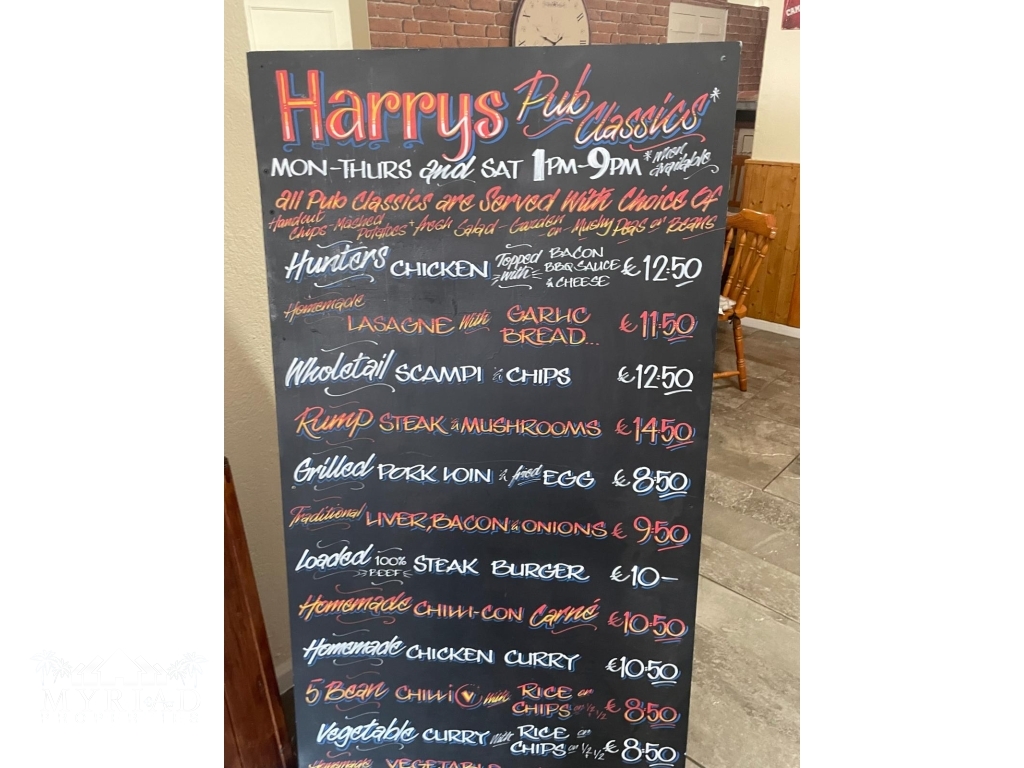 Harrys Pub Classics*
MON-THURS and SAT 1PM-9PM *when available
all Pub Classics are Served With Choice Of
Handcut Chips - Mashed Potatoes + fresh Salad - Garden or Mushy Peas or Beans
Hunters CHICKEN Topped with BACON BBQ SAUCE & CHEESE €12:50
Homemade LASAGNE With GARLIC BREAD... €11:50
Wholetail SCAMPI & CHIPS €12:50
Rump STEAK & MUSHROOMS €14:50
Grilled PORK LOIN & fried EGG €8:50
Traditional LIVER, BACON & ONIONS €9:50
Loaded 100% BEEF STEAK BURGER €10-
Homemade CHILLI-CON Carné €10:50
Homemade CHICKEN CURRY €10:50
5 Bean CHILLI V with RICE or CHIPS or ½ ½ €8:50
Vegetable CURRY with RICE or CHIPS or ½ ½ €8:50
Homemade VEGETABLE
MYRIAD